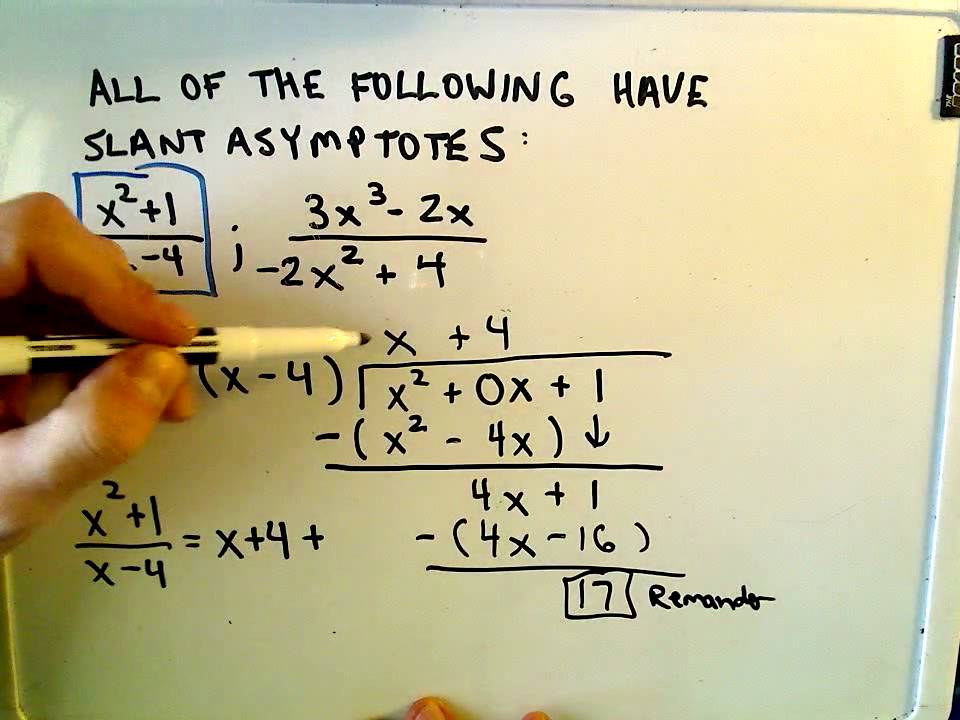 ALL OF THE FOLLOWING HAVE
SLANT ASYMPTOTES:
x²+1 ; 3x³- 2x
-4 -2x² + 4
x + 4
(x-4) x² + 0x + 1
-(x² - 4x) ↓
4x + 1
x²+1 / x-4 = x+4+
-(4x-16)
17 Remainder